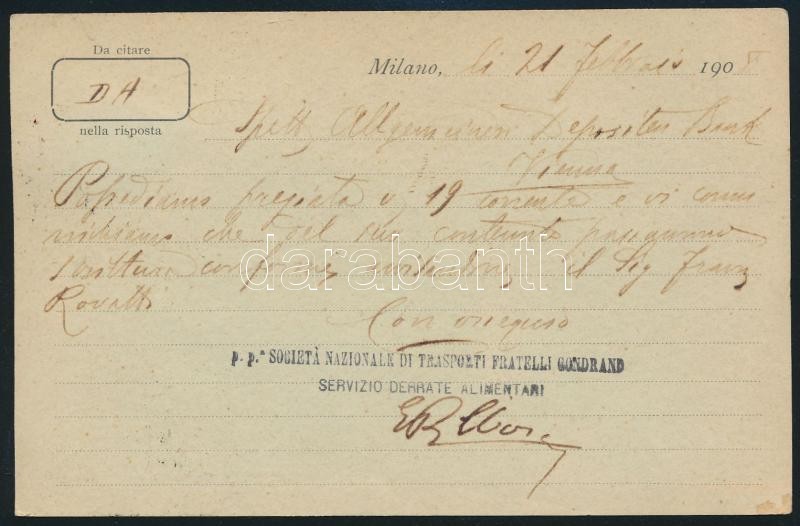 Da citare
DA
nella risposta
Milano, li 21 Febbraio 190
Spett Allgemeinen Depositen Bank
Vienna
Possediamo pregiata v 19 corrente e vi comu
nichiamo che del suo contenuto
conforme il Sig Franz
Rovatti
Con ossequio
p. p.ª SOCIETÀ NAZIONALE DI TRASPORTI FRATELLI GONDRAND
SERVIZIO DERRATE ALIMENTARI
darabanth